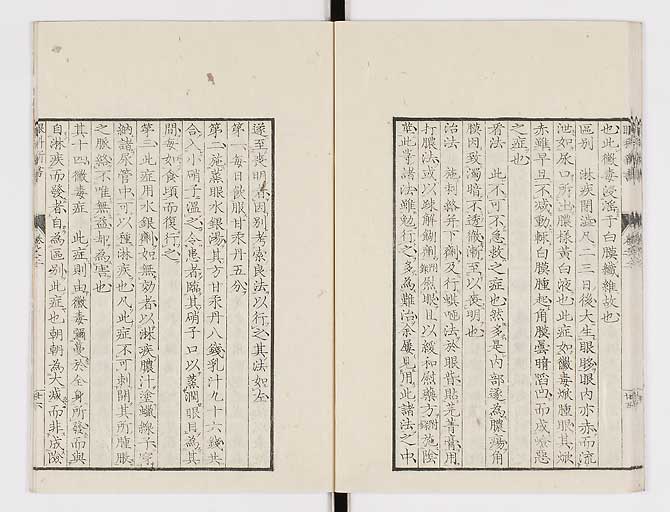 也此黴毒浸淫于白膜織雜故也
區別 淋疾閉濇凡二三日後大生眼眵眼內亦赤而流
泄如尿口所出膿樣黃白液也此症如黴毒焮腫眼其焮
赤雖早且不減動輒白膜腫起角膜曇暗陷凹而成險惡
之症也
看法 此不可不急救之症也然多是內部遂為膿瘍角
膜內致濁暗不透徹漸至以喪明也
治法 施刺絡并下劑及行蜞咂法於眼眥貼芫菁膏用
打膿法或以疎解劑慰眼且以緩和慰藥方施陰
莖此等諸法雖勉行之多為難治余屢見用此諸法之中
遂至喪明者因別考索良法以行之其法如左
第一每日飲服甘汞丹五分
第二蒸眼水銀湯其方甘汞丹八錢乳汁九十六錢共
合入小硝子溫之令患者臨其硝子口以蒸潤眼目為其
間每如食頃而復行之
第三此症用水銀劑如無効者以淋疾膿汁塗蠟線子
納諸尿管中可以種淋疾也凡此症不可刺開其所腫脹
之脈絡不唯無益却為害也
其十四黴毒症 此症則由黴毒彌蔓於全身所發而與
自淋疾而發者自為區別此症也朝朝為大減而非成險
眼科新書
卷之二
廿六